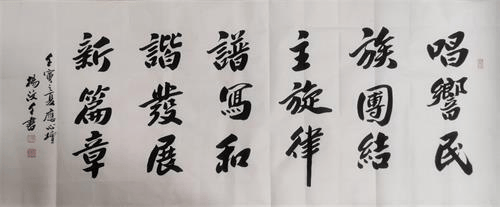 唱響民
族團結
主旋律
譜寫和
諧發展
新篇章
壬寅之夏